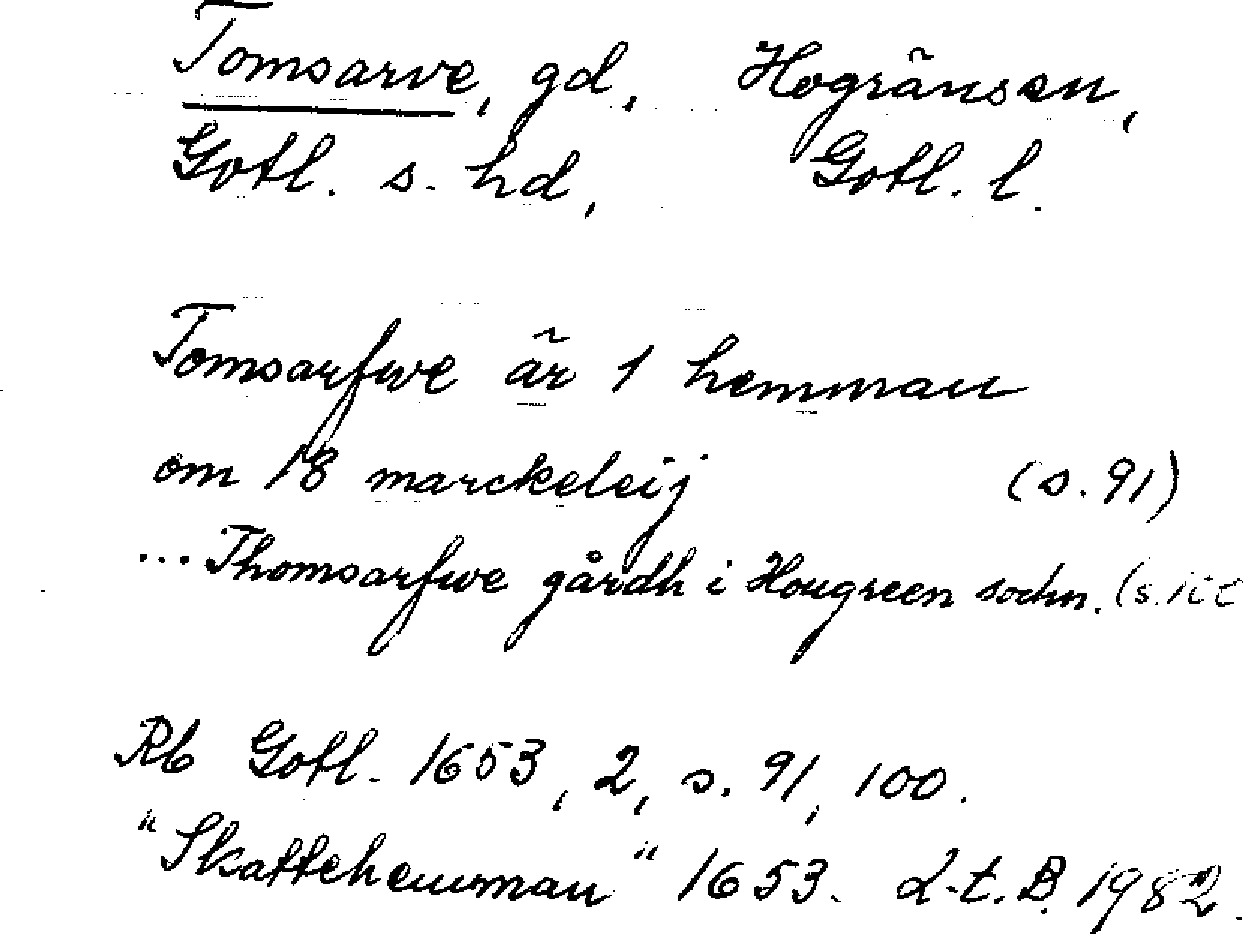 Tomsarve, gd, Hogränsn,
Gotl. s. hd, Gotl. l.
Tomsarfwe är 1 hemman
om 18 marckeleij (s. 91)
... Thomsarfwe gårdh i Hougreen sochn. (s. 100
Rb Gotl. 1653, 2, s. 91, 100.
"Skattehemman" 1653. L-t. B. 1982.